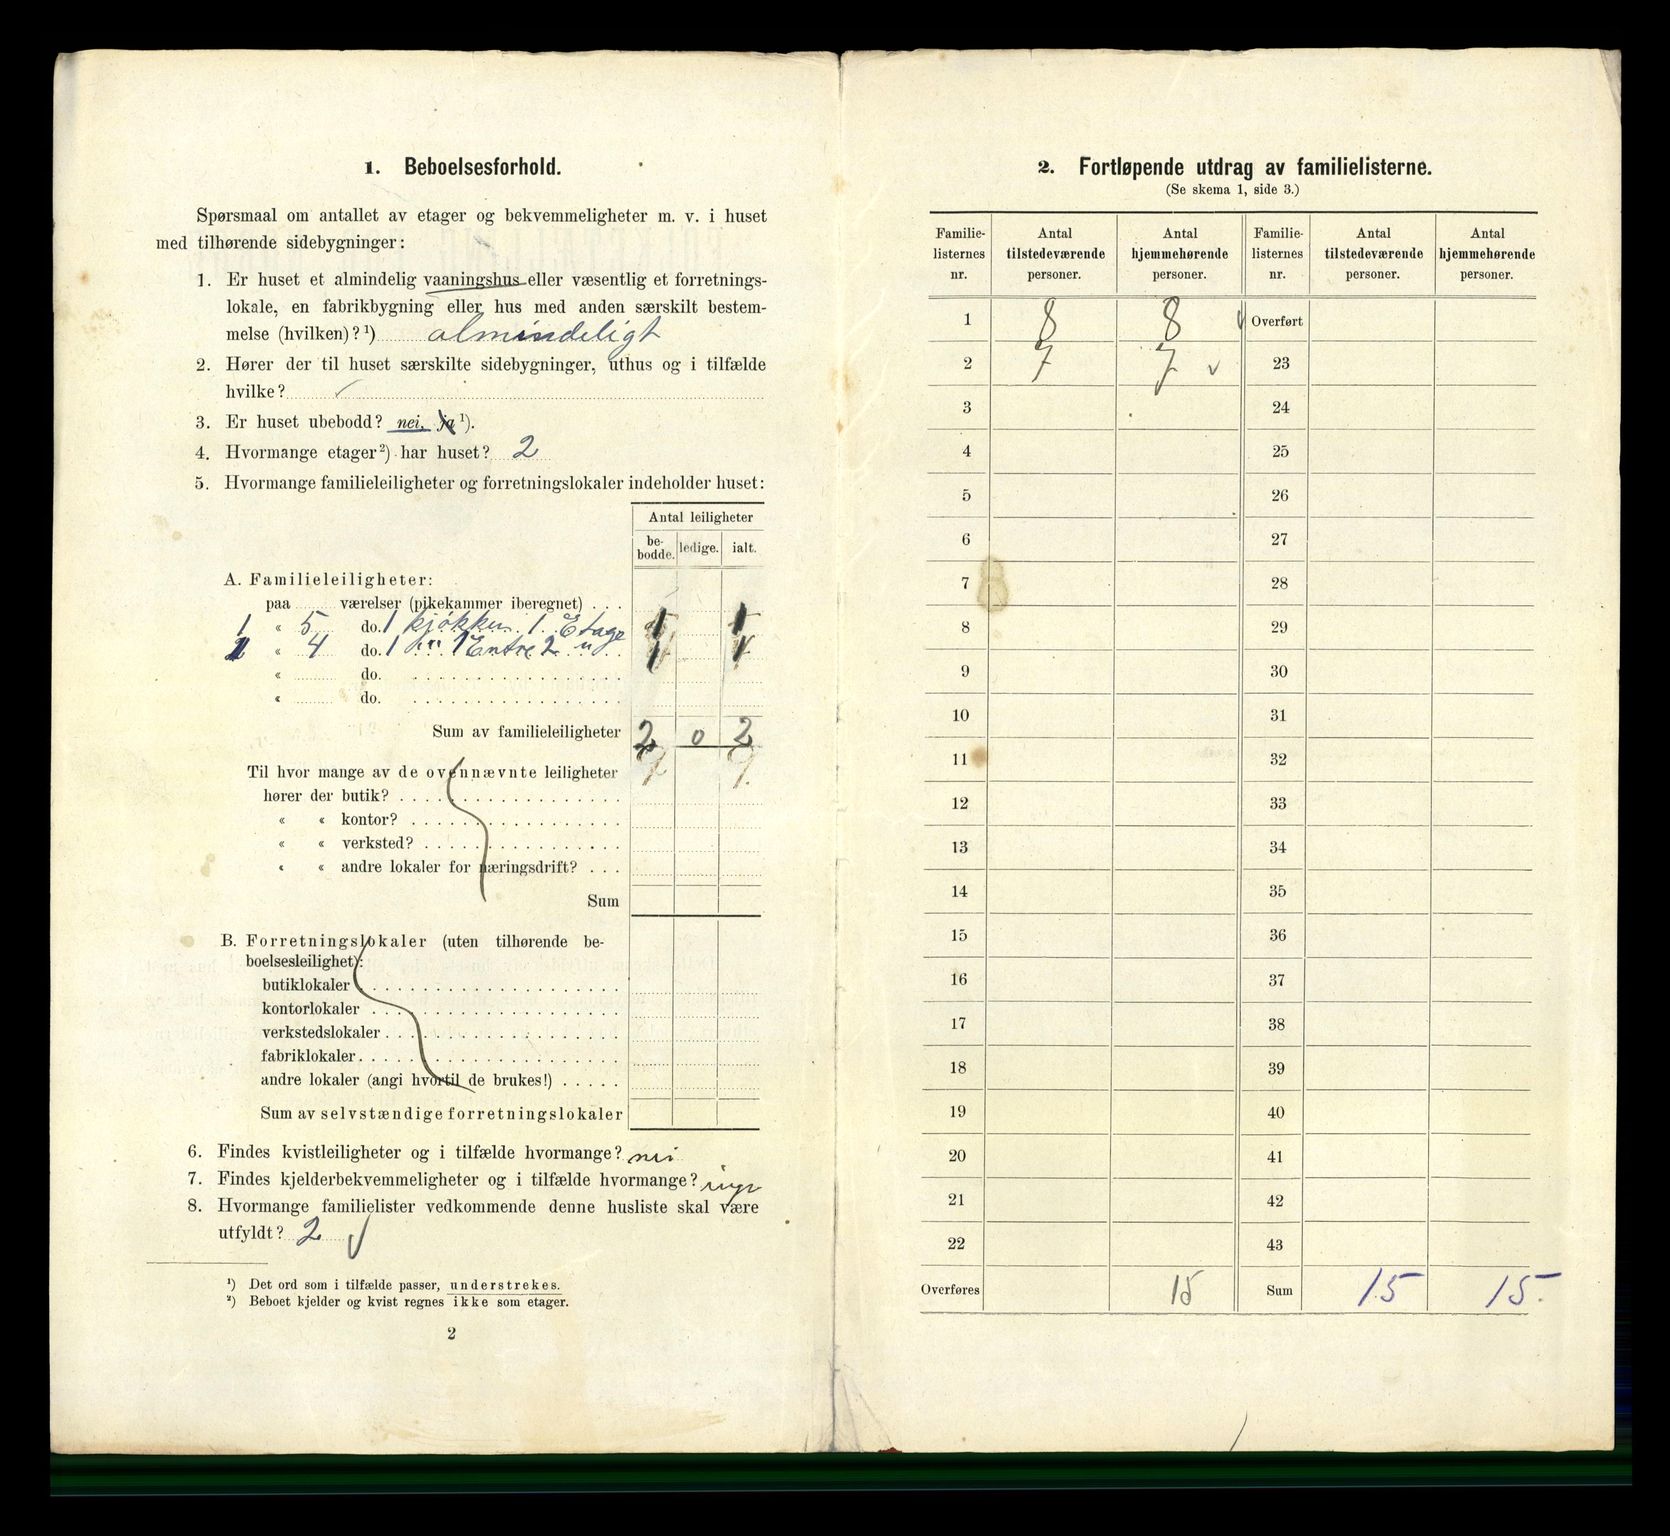 1. Beboelsesforhold.
Spørsmaal om antallet av etager og bekvemmeligheter m. v. i huset
med tilhørende sidebygninger:
1. Er huset et almindelig vaaningshus eller væsentlig et forretnings-
lokale, en fabrikbygning eller hus med anden særskilt bestem-
melse (hvilken)? ¹) almindeligt
2. Hører der til huset særskilte sidebygninger, uthus og i tilfælde
hvilke?
3. Er huset ubebodd? nei, ja ¹).
4. Hvormange etager ²) har huset? 2
5. Hvormange familieleiligheter og forretningslokaler indeholder huset:
Antal leiligheter
be-
bodde. ledige. ialt.
A. Familieleiligheter:
paa værelser (pikekammer iberegnet) . . .
1 « 5 do. 1 kjøkken 1 Etage 1 1
1 « 4 do. 1 " 1 Entre 2 " 1 1
« do.
« do.
Sum av familieleiligheter 2 0 2
Til hvor mange av de ovennævnte leiligheter
hører der butik?
« « kontor?
« « verksted?
« « andre lokaler for næringsdrift? . . .
Sum
B. Forretningslokaler (uten tilhørende be-
boelsesleilighet):
butiklokaler
kontorlokaler
verkstedslokaler
fabriklokaler
andre lokaler (angi hvortil de brukes!)
Sum av selvstændige forretningslokaler
6. Findes kvistleiligheter og i tilfælde hvormange? nei
7. Findes kjelderbekvemmeligheter og i tilfælde hvormange?
8. Hvormange familielister vedkommende denne husliste skal være
utfyldt? 2
¹) Det ord som i tilfælde passer, understrekes.
²) Beboet kjelder og kvist regnes ikke som etager.
2
2. Fortløpende utdrag av familielisterne.
(Se skema 1, side 3.)
Familie-
listernes
nr. Antal
tilstedeværende
personer. Antal
hjemmehørende
personer. Familie-
listernes
nr. Antal
tilstedeværende
personer. Antal
hjemmehørende
personer.
1 8 8 Overført
2 7 7 23
3 24
4 25
5 26
6 27
7 28
8 29
9 30
10 31
11 32
12 33
13 34
14 35
15 36
16 37
17 38
18 39
19 40
20 41
21 42
22 43
Overføres 15 Sum 15 15.